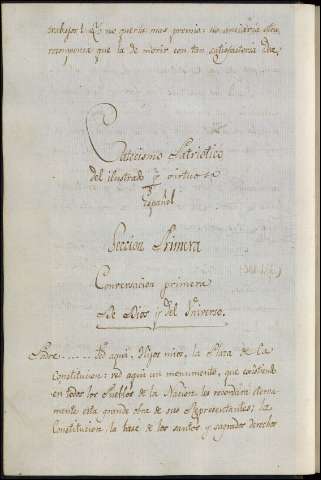 trabajos! Yo no queria mas premio: no anciaria otra
recompensa que la de morir con tan satisfactoria idea.
Catecismo Patriotico
del ilustrado y virtuoso
Español
Seccion Primera
Conversacion primera
De Dios y del Universo.
Padre ...... Ved aqui, Hijos mios, la Plaza de la
Constitucion: ved aqui un monumento, que
en todos los Pueblos de la Nacion les recordará eterna-
mente esta grande obra de sus Representantes; la
Constitucion, la base de los santos y sagrados derechos